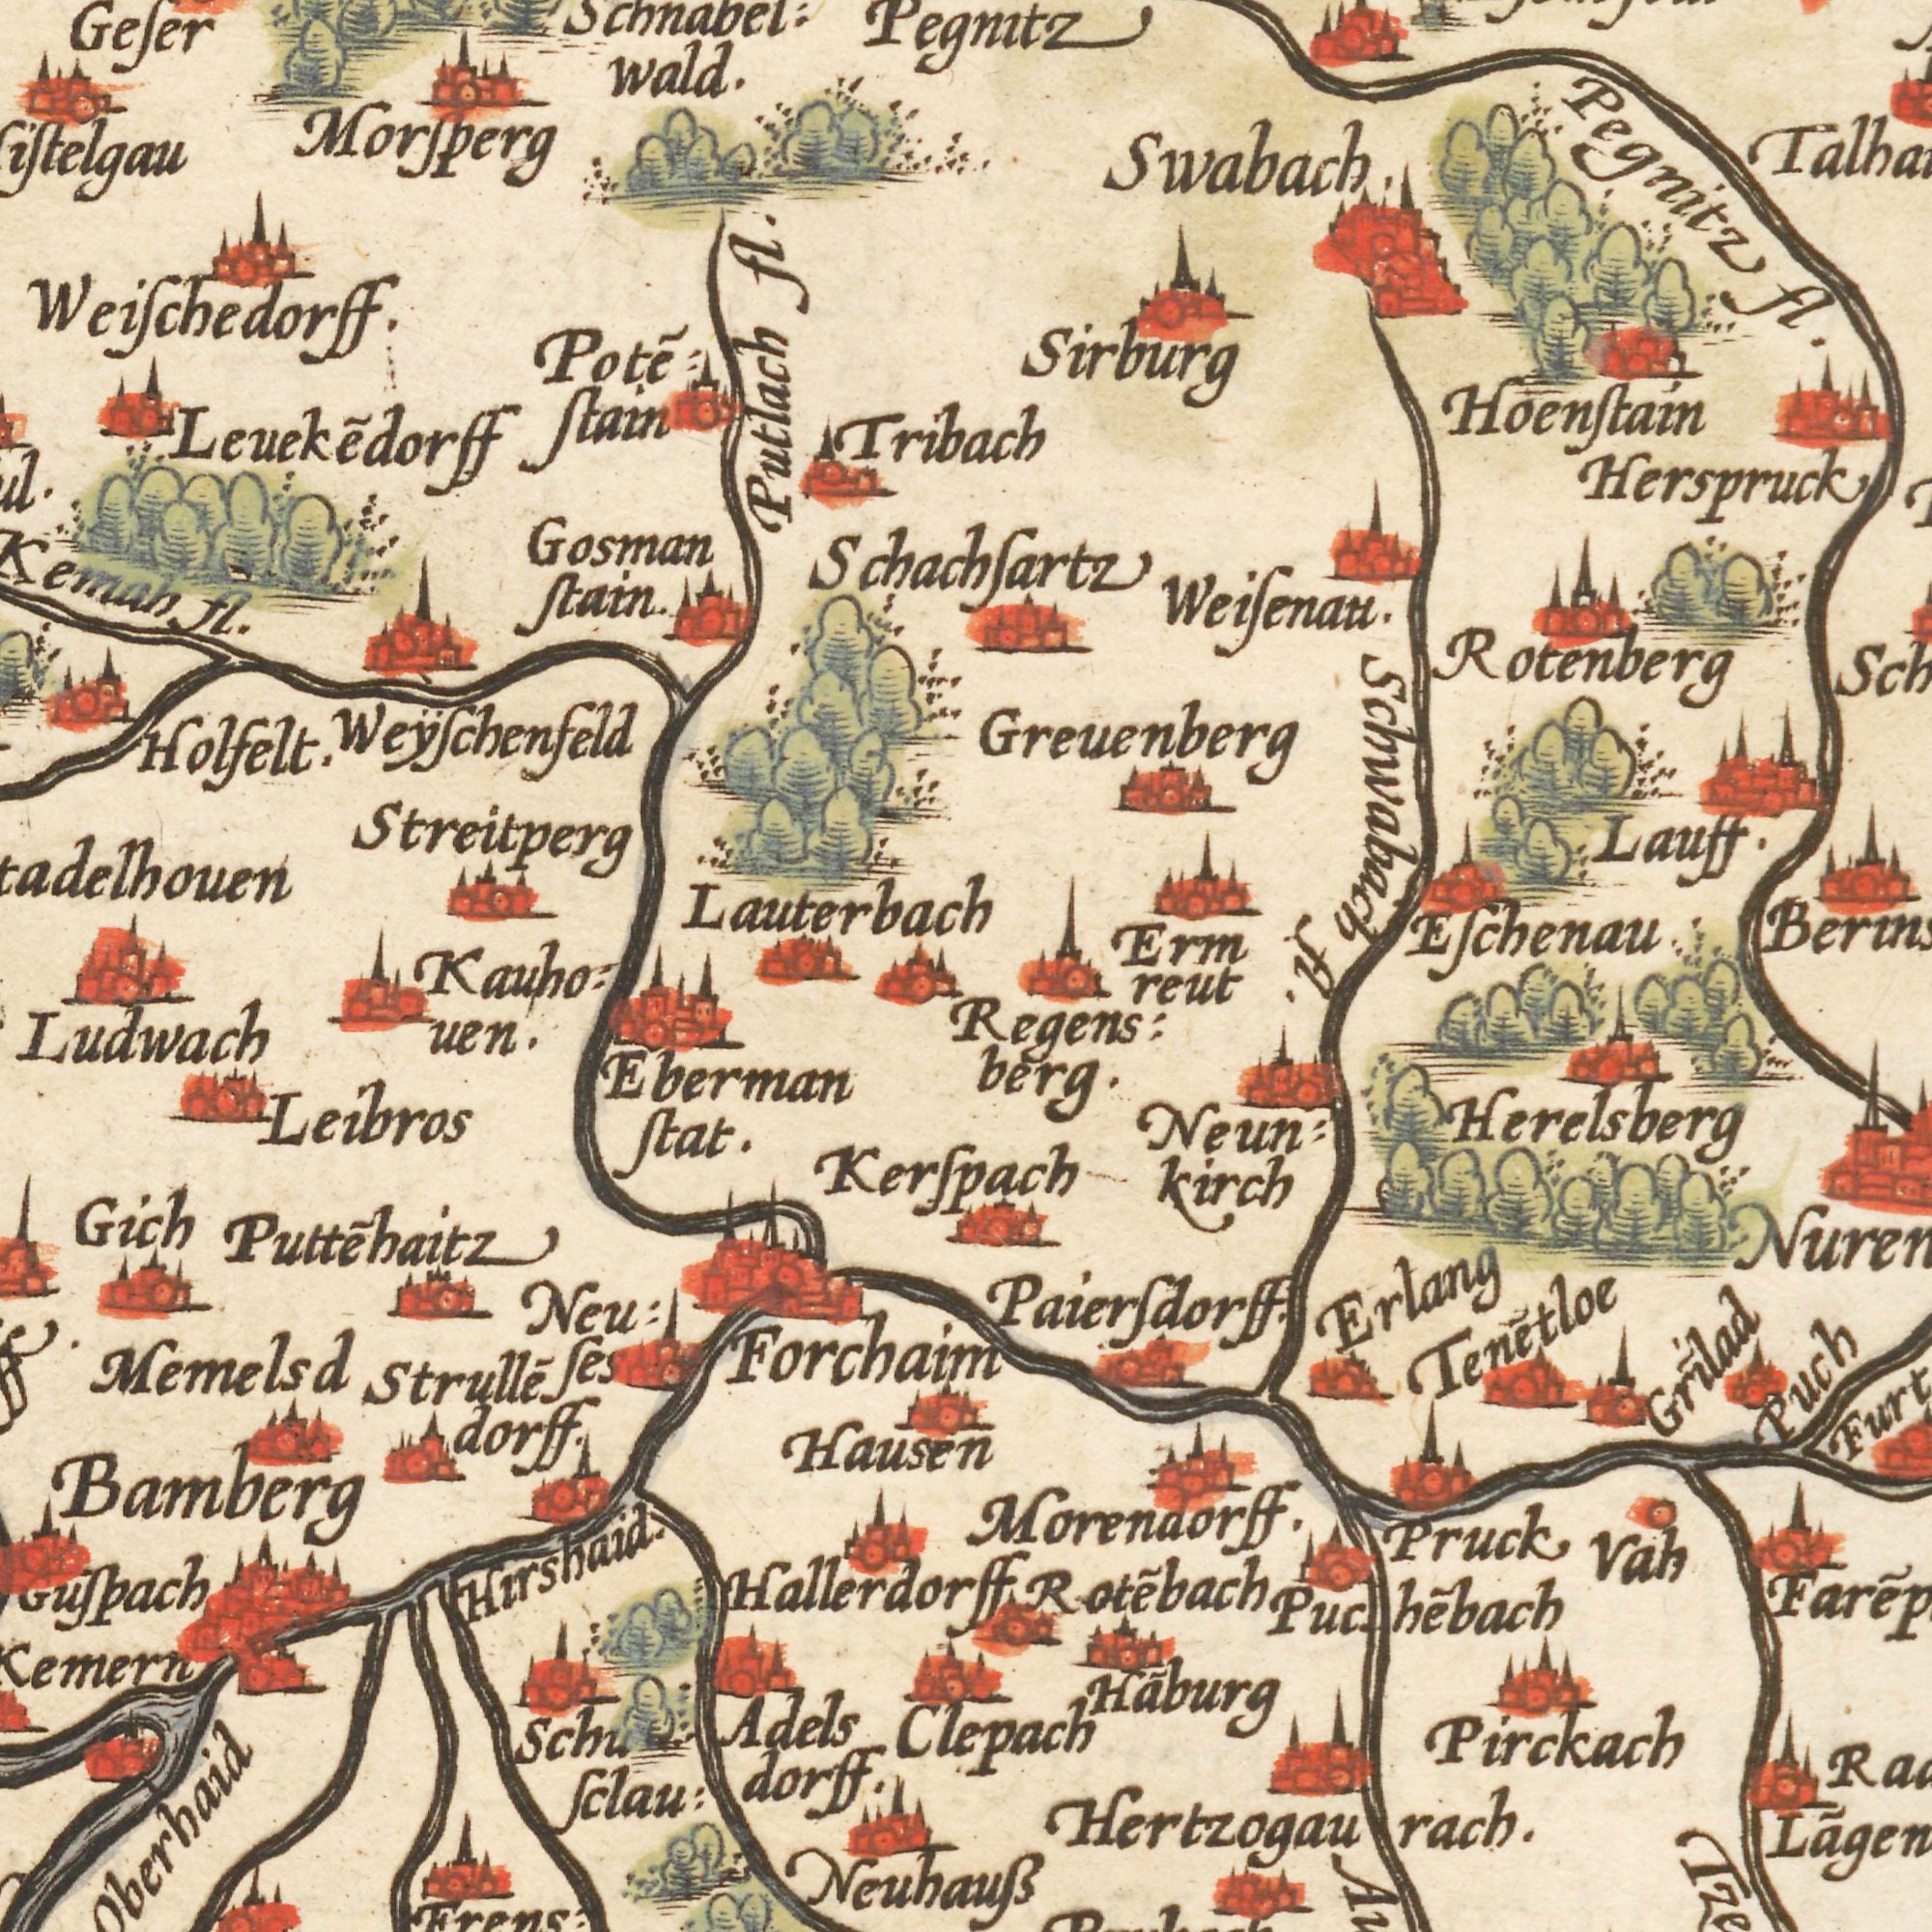 Geſer
Schnabel:
wald.
Pegnitz
Morſperg
Swabach.
Pegnitz fl.
Weiſchedorff.
Potē:
ſtain
Putlach fl.
Sirburg
Leuekēdorff
Tribach
Hoenſtain
Herspruck
Kemah fl.
Gosman
ſtain.
Schachſartz
Weiſenau.
Rotenberg
Holfelt.
Weyſchenfeld
Greuenberg
Schwabach fl.
Streitperg
Lauff.
Lauterbach
Erm
reut
Eſchenau
Kauho:
uen.
Ludwach
Regens:
berg.
Eberman
ſtat.
Leibros
Neun:
kirch
Herelsberg
Kerſpach
Gich
Puttēhaitz
Neu:
ſes
Paierſdorff.
Erlang
Tenētloe
Grīlad
Puch
Memelsd
Strullē
dorff.
Forchaim
Hausen
Bamberg
Morendorff.
Pruck
Vah
Hirshaid.
Hallerdorff
Rotēbach
Puchēbach
Guſpach
Kemern
Hāburg
Adels
dorff.
Clepach
Pirckach
ſclau:
Oberhaid
Hertzogaurach.
Neuhauß